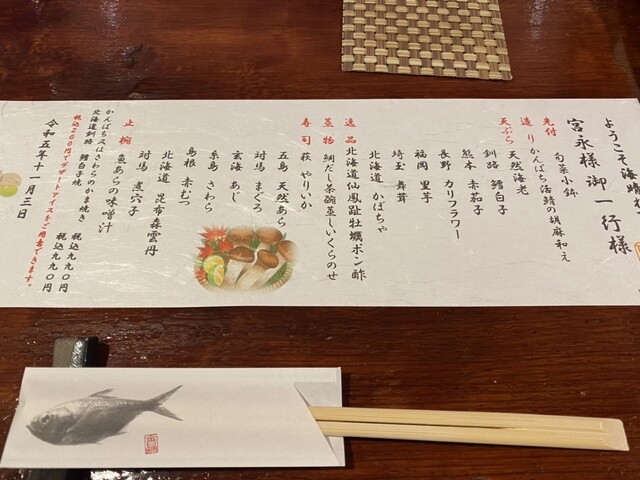 ようこそ海晴れ
宮永様御一行様
先付 旬菜小鉢
造り かんぱち活〆の胡麻和え
天ぷら 天然海老
釧路 鱈白子
熊本 赤茄子
長野 カリフラワー
福岡 里芋
埼玉 舞茸
北海道 かぼちゃ
逸品 北海道仙鳳趾牡蠣ポン酢
蒸物 鯛だし茶碗蒸しいくらのせ
寿司 萩 やりいか
五島 天然あら
対馬 まぐろ
玄海 あじ
糸島 さわら
島根 赤むつ
北海道 昆布森雲丹
対馬 煮穴子
止椀 魚あらの味噌汁
かんぱち又はさわらのかま焼き 税込九九〇円
北海道釧路 鱈白子焼 税込九九〇円
税込200円でデザートアイスをご用意できます。
令和五年十一月三日